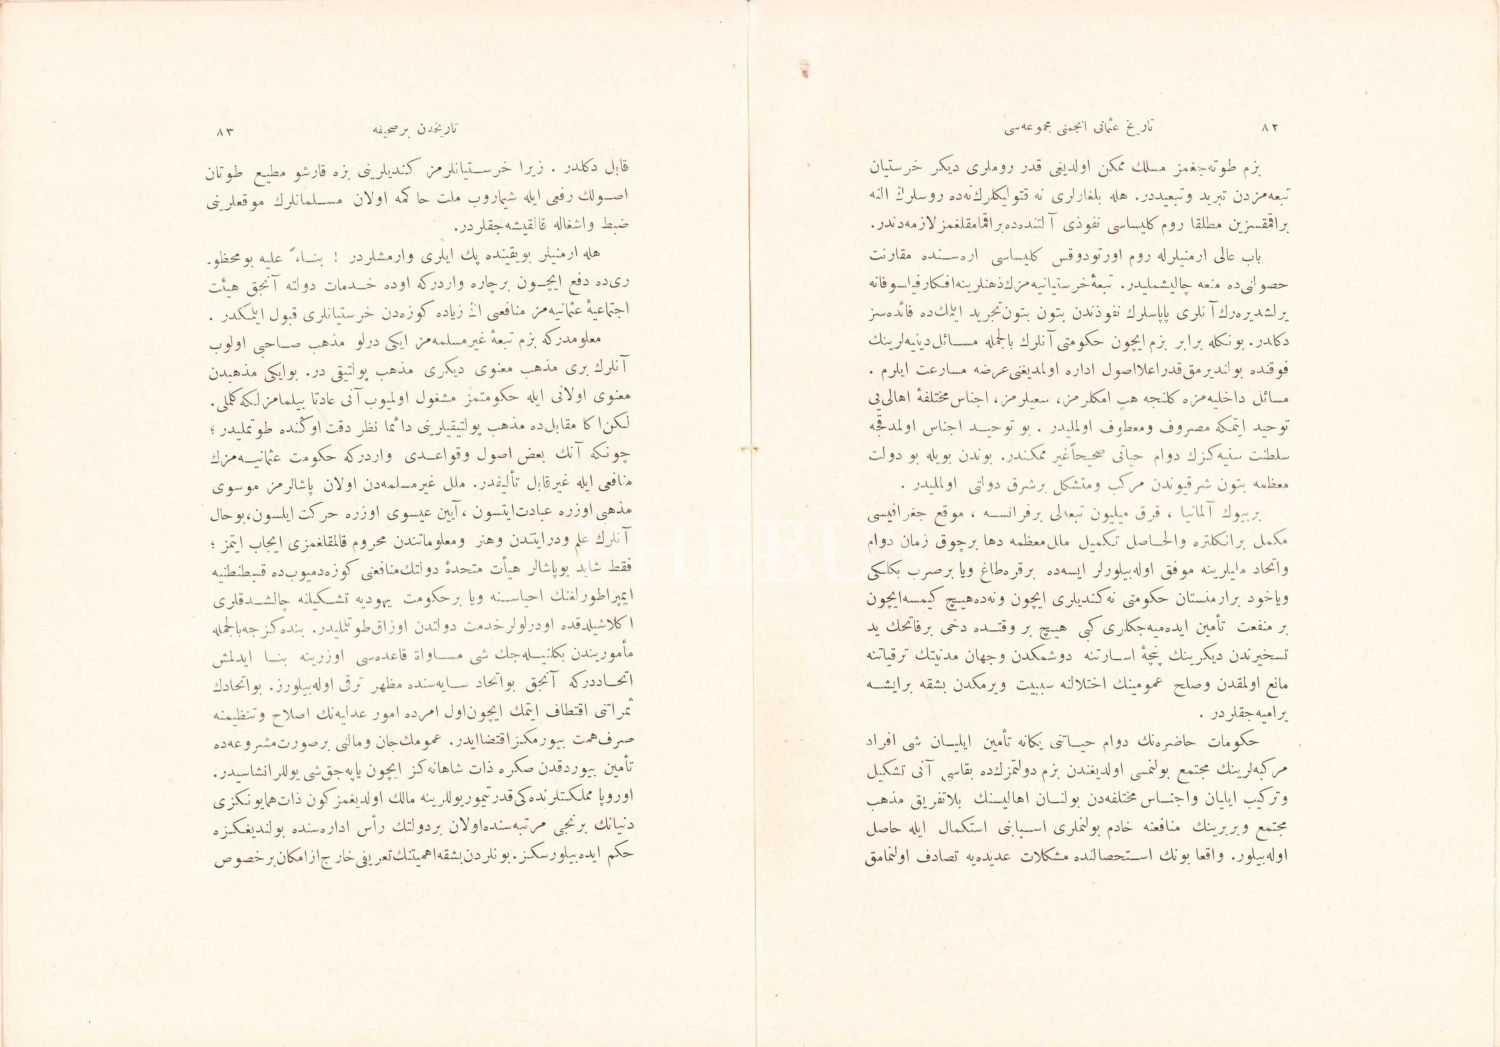 ٨٢
تاریخ عثمانی انجمنی مجموعه‌سی
بزم طوته‌جغمز مسلك ممكن اولدیغی قدر روملری دیكر خرستیان
تبعه‌مزدن تبرید وتبعیددر. هله بلغارلری نه قتولیكلرك‌نه‌ده روسلرك النه
براقمقسزین مطلقا روم كلیساسی نفوذی آلتنده‌ده‌براقمامقلغمز لازمه‌دندر.
باب عالی ارمنیلرله روم اورتودوقس كلیساسی اره‌سنده مقارنت
حصولنی‌ده منعه چالیشملیدر. تبعهٔ خرستیانیه‌مزك ذهنلرینه افكار فیلسوفانه
یرلشدیره‌رك آنلری پاپاسلرك نفوذندن بتون بتون تجرید ایتمك‌ده فائده‌سز
دكلدر. بونكله برابر بزم ایچون حكومتی آنلرك بالجمله مسائل دینیه‌لرینك
فوقنده بولندیرمق‌قدراعلا اصول اداره اولمدیغنی عرضه مسارعت ایلرم .
مسائل داخلیه‌مزه كلنجه هپ امكلرمز، سعیلرمز، اجناس مختلفهٔ اهالی‌یی
توحید ایتمكه مصروف ومعطوف اولملیدر . بو توحید اجناس اولمدقجه
سلطنت سنیه‌كزك دوام حیاتی صحیحاً غیر ممكندر. بوندن بویله بو دولت
معظمه بتون شرقیوندن مركب ومتشكل برشرق دولتی اولملیدر .
بربیوك آلمانیا ، قرق میلیون تبعه‌لی برفرانسه ، موقع جغرافیسی
مكمل برانكلتره والحاصل تكمیل ملل معظمه دها برچوق زمان دوام
واتحاد ملیلرینه موفق اوله‌بیلورلر ایسه‌ده برقره‌طاغ ویا برصرب بكلكی
ویاخود برارمنستان حكومتی نه كندیلری ایچون ونه‌ده هیچ كیمسه ایچون
بر منفعت تأمین ایده‌میه‌جكلری كبی هیچ بر وقتده دخی برفاتحك ید
تسخیرندن دیكرینك پنجهٔ اسارتنه دوشمكدن وجهان مدنیتك ترقیاتنه
مانع اولمقدن وصلح عمومینك اختلالنه سببیت ویرمكدن بشقه برایشه
یرامیه‌جقلردر .
حكومات حاضره‌نك دوام حیاتنی یكانه تأمین ایلیان شی افراد
مركبه‌لرینك مجتمع بولنمسی اولدیغندن بزم دولتمزك‌ده بقاسی آنی تشكیل
وتركیب ایلیان واجناس مختلفه‌دن بولنان اهالیسنك بلاتفریق مذهب
مجتمع وبربرینك منافعنه خادم بولنملری اسبابنی استكمال ایله حاصل
اوله‌بیلور. واقعا بونك استحصالنده مشكلات عدیده‌یه تصادف اولنمامق
تاریخدن برصحیفه
٨٣
قابل دكلدر . زیرا خرستیانلرمز كندیلرینی بزه قارشو مطیع طوتان
اصولك رفعی ایله شیماروب ملت حاكمه اولان مسلمانلرك موقعلرینی
ضبط واشغاله قالقیشه‌جقلردر.
هله ارمنیلر بویقینده پك ایلری وارمشلردر ! بناءً علیه بومحظو-
ری‌ده دفع ایچون برچاره واردركه اوده خدمات دولته آنجق هیئت
اجتماعیهٔ عثمانیه‌مز منافعی اڭ زیاده كوزه‌دن خرستیانلری قبول ایتمكدر .
معلومدركه بزم تبعهٔ غیرمسلمه‌مز ایكی درلو مذهب صاحبی اولوب
آنلرك بری مذهب معنوی دیكری مذهب پولتیقی در. بوایكی مذهبدن
معنوی اولانی ایله حكومتمز مشغول اولمیوب آنی عادتا بیلمامزلكه كلملی.
لكن اكا مقابل‌ده مذهب پولتیقیلرینی دائما نظر دقت اوڭنده طوتملیدر ؛
چونكه آنك بعض اصول وقواعدی واردركه حكومت عثمانیه‌مزك
منافعی ایله غیرقابل تألیفدر. ملل غیرمسلمه‌دن اولان پاشالرمز موسوی
مذهبی اوزره عبادت‌ایتسون ، آیین عیسوی اوزره حركت ایلسون، بوحال
آنلرك علم ودرایتندن وهنر ومعلوماتندن محروم قالمقلغمزی ایجاب ایتمز ؛
فقط شاید بوپاشالر هیأت متحدهٔ دولتك منافعنی كوزه‌دمیوب‌ده قسطنطنیه
ایمپراطورلغنك احیاسنه ویا برحكومت یهودیه تشكیلنه چالشدقلری
اكلاشیلدقده اودرلولر خدمت دولتدن اوزاق طوتملیدر. بنده‌كزجه بالجمله
مأموریندن بكلنیله‌جك شی مساواة قاعده‌سی اوزرینه بنا ایدلمش
اتحاددركه آنجق بواتحاد سایه‌سنده مظهر ترقی اوله‌بیلورز. بواتحادك
ثمراتنی اقتطاف ایتمك ایچون اول امرده امور عدلیه‌نك اصلاح وتنظیمنه
صرف همت بیورمكز اقتضا ایدر. عمومك جان ومالنی برصورت مشروعه‌ده
تأمین بیوردقدن صكره ذات شاهانه‌كز ایچون یاپه‌جق شی یوللر انشاسیدر.
اوروپا مملكتلرنده‌كی قدر تیموریوللرینه مالك اولدیغمز كون ذات همایونكزی
دنیانك برنجی مرتبه‌سنده اولان بردولتك رأس اداره‌سنده بولندیغكزه
حكم ایده‌بیلورسكز. بونلردن بشقه اهمیتنك تعریفی خارج از امكان برخصوص